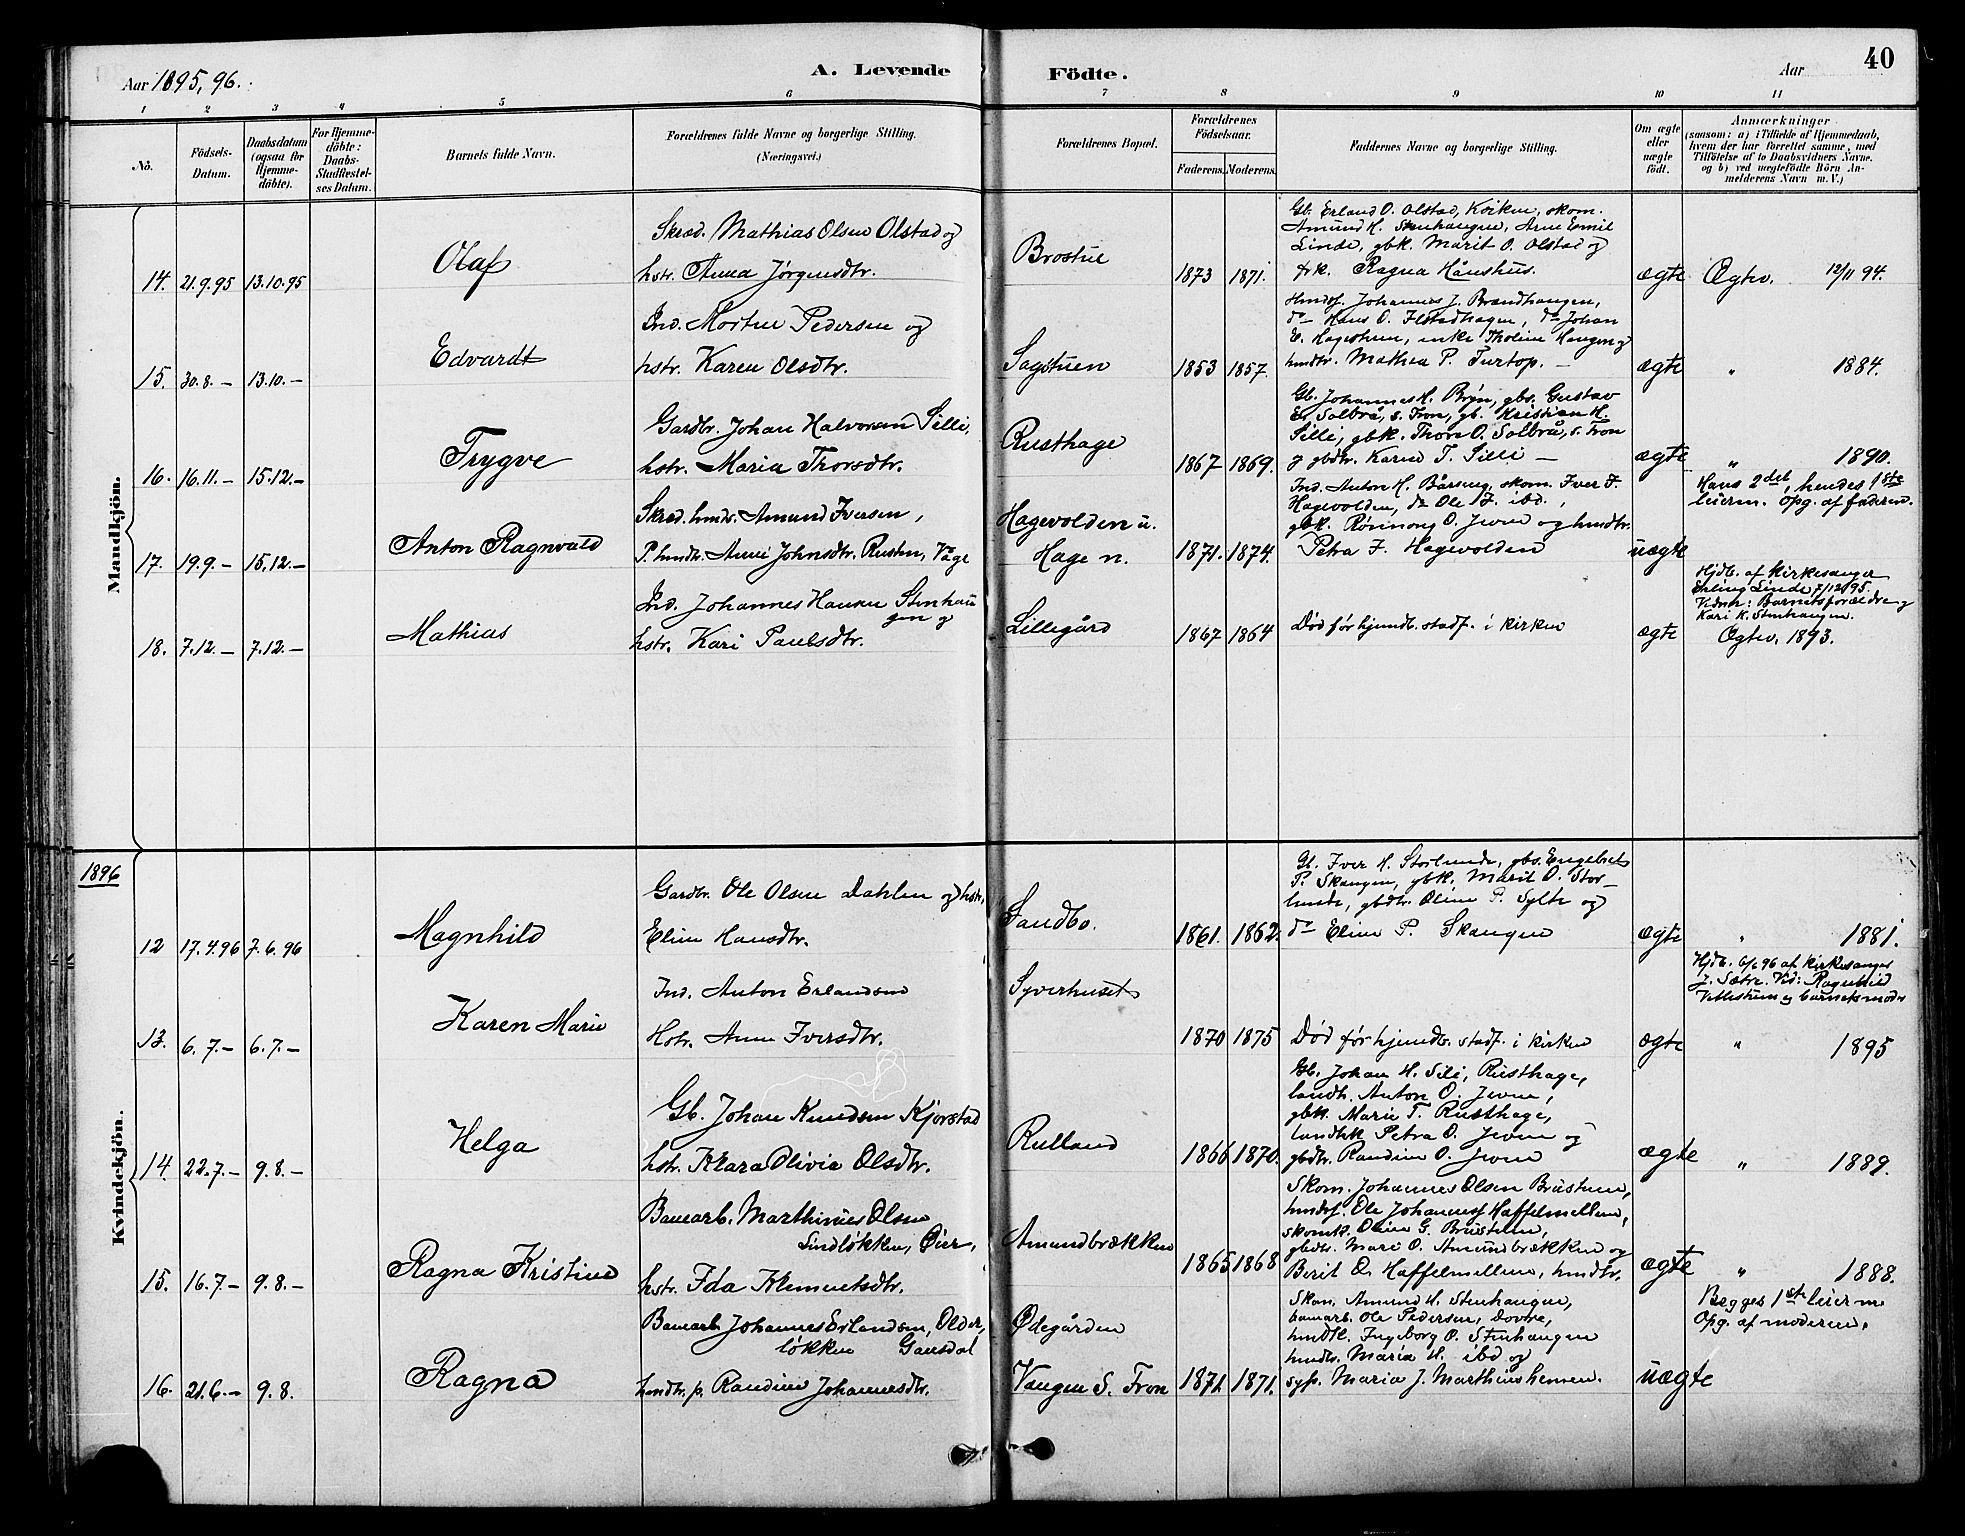 Aar 1895, 96.
A. Levende Födte.
Aar
40
1 2 3 4 5 6 7 8 9 10 11
No.
Födsels-Datum.
Daabsdatum (ogsaa for Hjemme-döbte).
For Hjemme-döbte: Daabs-Stadfæstel-ses Datum.
Barnets fulde Navn.
Forældrenes fulde Navne og borgerlige Stilling.
(Næringsvei.)
Forældrenes Bopæl.
Forældrenes Födselsaar.
Faderens. Moderens.
Faddernes Navne og borgerlige Stilling.
Om ægte eller uægte født.
Anmærkninger
(saasom: a) i Tilfælde af Hjemmedaab,
hvem der har forrettet samme, med
Tilföielse af to Daabsvidners Navne.
og b) ved uægtefödte Börn An-
melderens Navn m. V.)
Mandkjön.
14. 21.9.95 13.10.95 Olaf
Skræd. Mathias Olsen Olstad og
hstr. Anna Jørgensdtr.
Brostue
1873 1871.
Gb. Erland O. Olstad, Kviken, skom.
Amund H. Stenhaugen, Arne Emil
Linde, gbk. Marit O. Olstad og
frk. Ragna Hånshus.
ægte Ægtev. 12/11 94.
15. 30.8.– 13.10.– Edvardt
Ind. Morten Pedersen og
hstr. Karen Olsdtr.
Sagstuen
1853 1857.
Hmdsf. Johannes J. Brandhaugen,
do Hans O. Ilstadhagen, do Johan
E. Hagestuen, enke Tholine Haugen og
hmdtr. Mathea P. Turtop. –
ægte „ 1884.
16. 16.11.– 15.12.– Trygve
Gardbr. Johan Halvorsen Silli,
hstr. Maria Thorsdtr.
Rusthage
1867 1869.
Gb. Johannes H. Bryn, gbs. Gustav
E. Solbrå, s. Fron, gb. Kristian H.
Silli, gbk. Thora O. Solbrå, s. Fron
og gbdtr. Karen T. Silli –
ægte „ 1890.
17. 19.9.– 15.12.– Anton Ragnvald
Skræd. hmds. Amund Iversen,
P. hmdtr. Anne Johnsdtr. Rusten, Våge
Hagevolden u.
Hage n.
1871. 1874.
Ind. Anton H. Bårseng, skom. Iver I.
Hagevolden, do Ole I. ibd.,
gbk. Rønnong O. Jevne og hmdtr.
Petra I. Hagevolden
uægte
Hans 2det, hendes 1ste
leierm. Opg. af faderen.
18. 7.12.– 7.12.– Mathias
Ind. Johannes Hansen Stenhau
gen og
hstr. Kari Paulsdtr.
Lillegård
1867 1864
Død før hjemdb. stadf. i kirken
ægte
Hjdb. af kirkesanger
Erling Linde 7/12 95.
Vidnh: Barnets forældre og
Kari K. Stenhaugen.
Ægtev. 1893.
1896
Kvindekjön.
12 17.4.96 7.6.96 Magnhild
Gardbr. Ole Olsen Dahlen og hstr.
Eline Hansdtr.
Sandbo.
1861. 1862.
Gb. Iver H. Storlunde, gbs. Engebret
P. Skaugen, gbk. Marit O. Stor-
lunde, gbdtr. Oline P. Sylte og
do Eline P. Skaugen
ægte „ 1881.
13. 6.7.– 6.7.– Karen Marie
Ind. Anton Erlandsen
Hstr. Anne Iversdtr.
Syverhuset
1870 1875
Død før hjemdb. stadf. i kirken
ægte
Hjdb. 6/6 96 af kirkesanger
J. Sætre. Vid: Ragnhild
Vetlestuen og barnets moder
„ 1895
14. 22.7.– 9.8.– Helga
Gb. Johan Knudsen Kjorstad
hstr. Klara Olivia Olsdtr.
Rulland
1866 1870.
Gb. Johan H. Sili, Rusthage,
landh. Anton O. Jevne,
gbk. Marie T. Rusthage,
landhk Petra O. Jevne og
gbdtr. Randine O. Jevne
ægte „ 1889.
15. 16.7.– 9.8.– Ragna Kristine
Banearb. Marthinus Olsen
Lindløkken, Øier,
hstr. Ida Klemetsdtr.
Amundbrækken
1865 1868
Skom. Johannes Olsen Brustuen,
hmdsf. Ole Johannesf Haffelmellem,
skomk. Oline G. Brustuen,
gbdtr. Mari O. Amundbrækken og
Berit O. Haffelmellem, hmdtr.
ægte „ 1888.
16. 21.6– 9.8. Ragna
Banearb. Johannes Erlandsen, Older,
løkken Gausdal
hmdtr. p. Randine Johannesdtr.
Ødegården
Vangen S. Fron
1871 1871.
Skom. Amund H. Stenhaugen,
banearb. Ole Pedersen, Dovre,
hmdtk. Ingeborg O. Stenhaugen
hmdtr. Maria H. ibd og
syp. Maria J. Marthinshemen.
uægte
Begges 1ste leierm
Opg. af moderen.